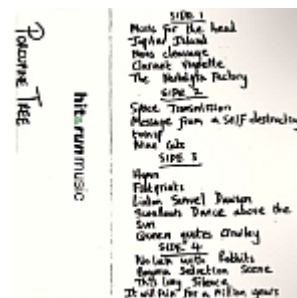 PORCUPINE TREE
hit&runmusic
SIDE 1
Music for the head
Jupiter Island
Nun's cleavage
Clarinet Vignette
The Nostalgia Factory
SIDE 2
Space Transmission
Message from a self destructing
turnip
Nine Cats
SIDE 3
Hymn
Footprints
Linton Samuel Dawson
Dance above the
Sun
Queen quotes Crowley
SIDE 4
No luck with Rabbits
Selection Scene
This Long Silence
It will rain for a Million years